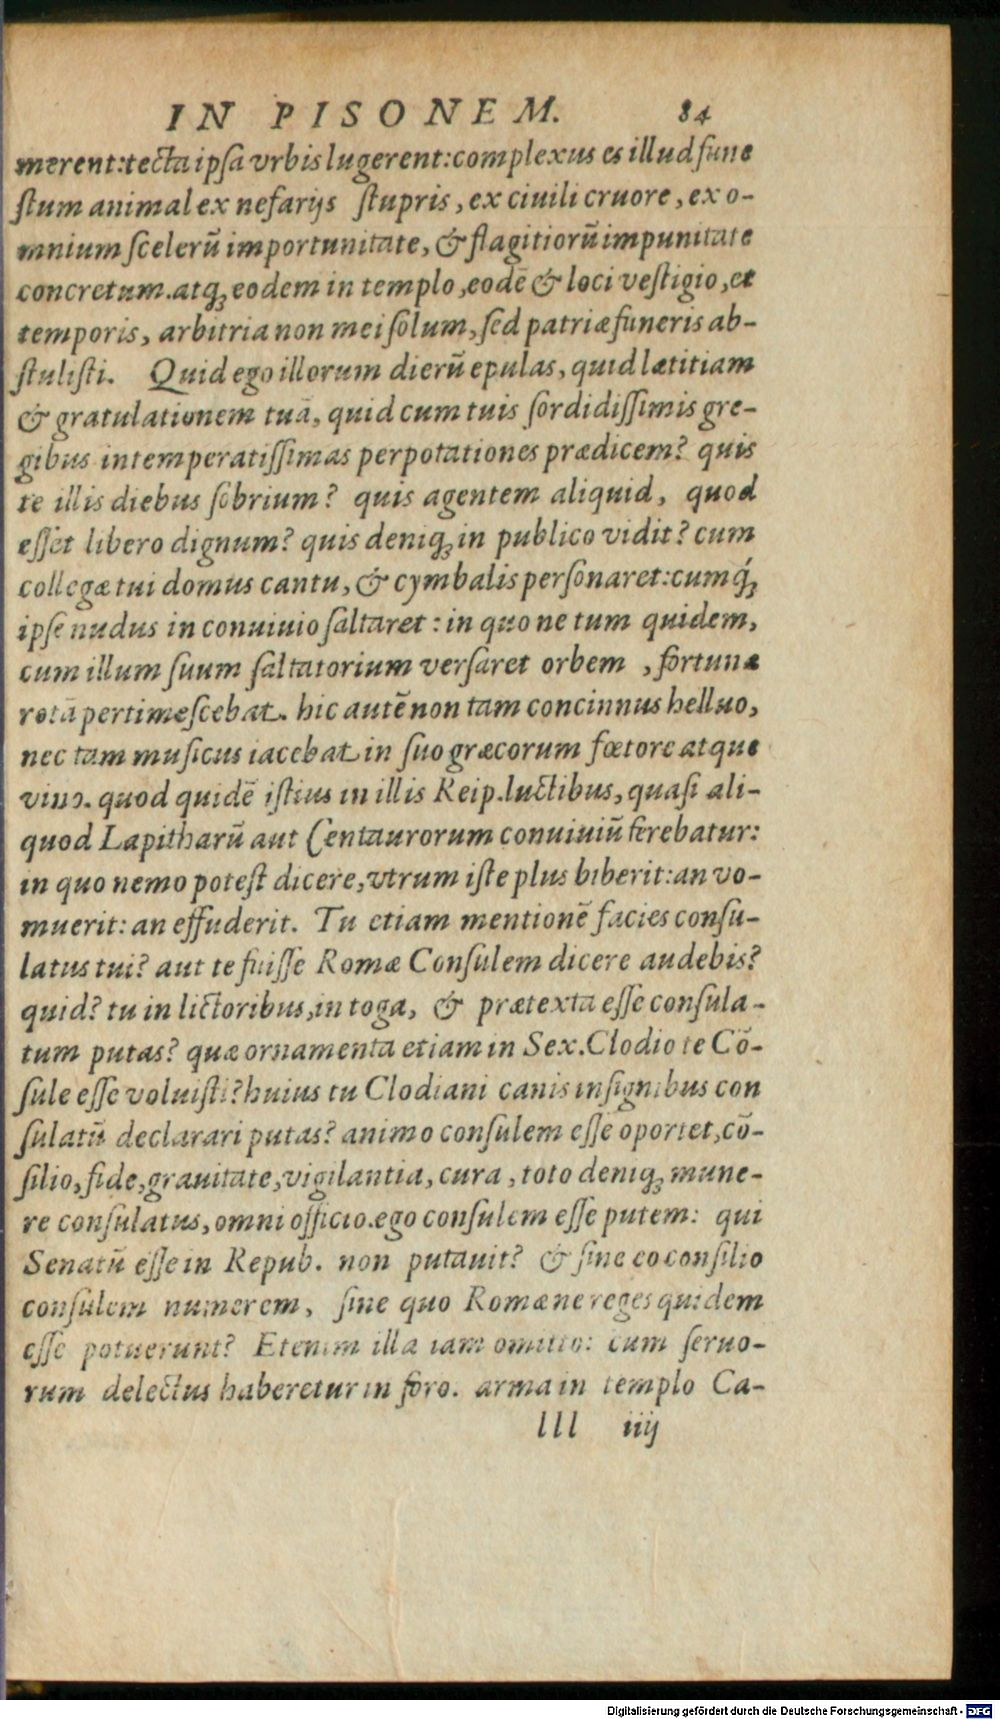 IN PISONEM. 84
merent:tecta ipſa vrbis lugerent:complexus es illud fune
ſtum animal ex nefarijs ſtupris, ex ciuili cruore, ex o-
mnium ſcelerū importunitate, & flagitiorū impunitate
concretum.atq; eodem in templo,eodē & loci veſtigio,et
temporis, arbitria non mei ſolum, ſed patriæ funeris ab-
ſtuliſti. Quid ego illorum dierū epulas, quid lætitiam
& gratulationem tuā, quid cum tuis ſordidiſſimis gre-
gibus intemperatiſſimas perpotationes prædicem? quis
te illis diebus ſobrium? quis agentem aliquid, quod
eſſet libero dignum? quis deniq; in publico vidit? cum
collegæ tui domus cantu, & cymbalis perſonaret:cumq́;
ipſe nudus in conuiuio ſaltaret: in quo ne tum quidem,
cum illum ſuum ſaltatorium verſaret orbem , fortunæ
rotā pertimeſcebat. hic autē non tam concinnus helluo,
nec tam muſicus iacebat in ſuo græcorum fœtore atque
vino. quod quidē iſtius in illis Reip.luctibus, quaſi ali-
quod Lapitharū aut Centaurorum conuiuiū ferebatur:
in quo nemo poteſt dicere,vtrum iſte plus biberit:an vo-
muerit: an effuderit. Tu etiam mentionē facies conſu-
latus tui? aut te fuiſſe Romæ Conſulem dicere audebis?
quid? tu in lictoribus,in toga, & prætexta eſſe conſula-
tum putas? quæ ornamenta etiam in Sex.Clodio te Cō-
ſule eſſe voluiſti?huius tu Clodiani canis inſignibus con
ſulatū declarari putas? animo conſulem eſſe oportet,cō-
ſilio,fide,grauitate,vigilantia, cura, toto deniq; mune-
re conſulatus, omni officio.ego conſulem eſſe putem: qui
Senatū eſſe in Repub. non putauit? & ſine eo conſilio
conſulem numerem, ſine quo Romæ ne reges quidem
eſſe potuerunt? Etenim illa iam omitto: cum ſeruo-
rum delectus haberetur in foro. arma in templo Ca-
lll iiij
Digitalisierung gefördert durch die Deutsche Forschungsgemeinschaft - DFG